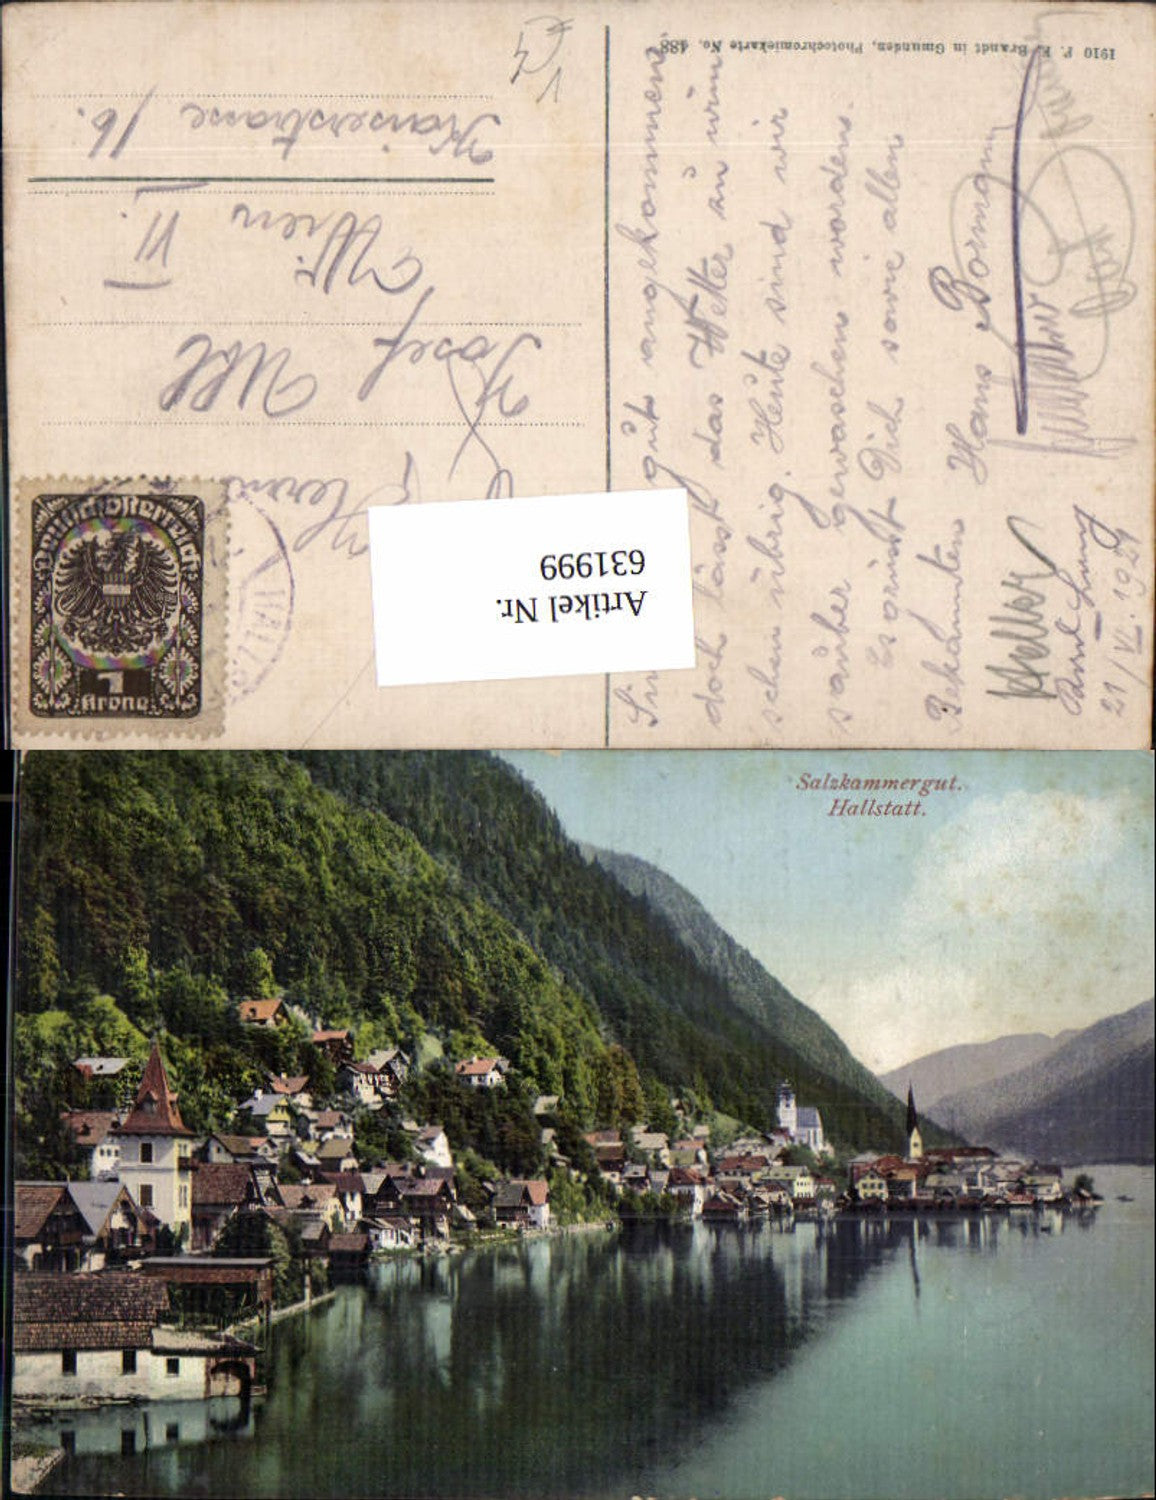 1910 F. E. Brandt in Gmunden, Photochromiekarte No. 488.
Sind gut angekommen,
doch lässt das Wetter zu wün
schen übrig. Heute sind wir
sauber gewaschen worden.
Es grüsst Dich sowie allen
Bekannten Hans
Heller
21/VI. 1921
Herrn
Josef Uhl
Wien
VI.
Kaiserstrasse 16.
Deutschösterreich
1
Krone
Artikel Nr.
631999
Salzkammergut.
Hallstatt.